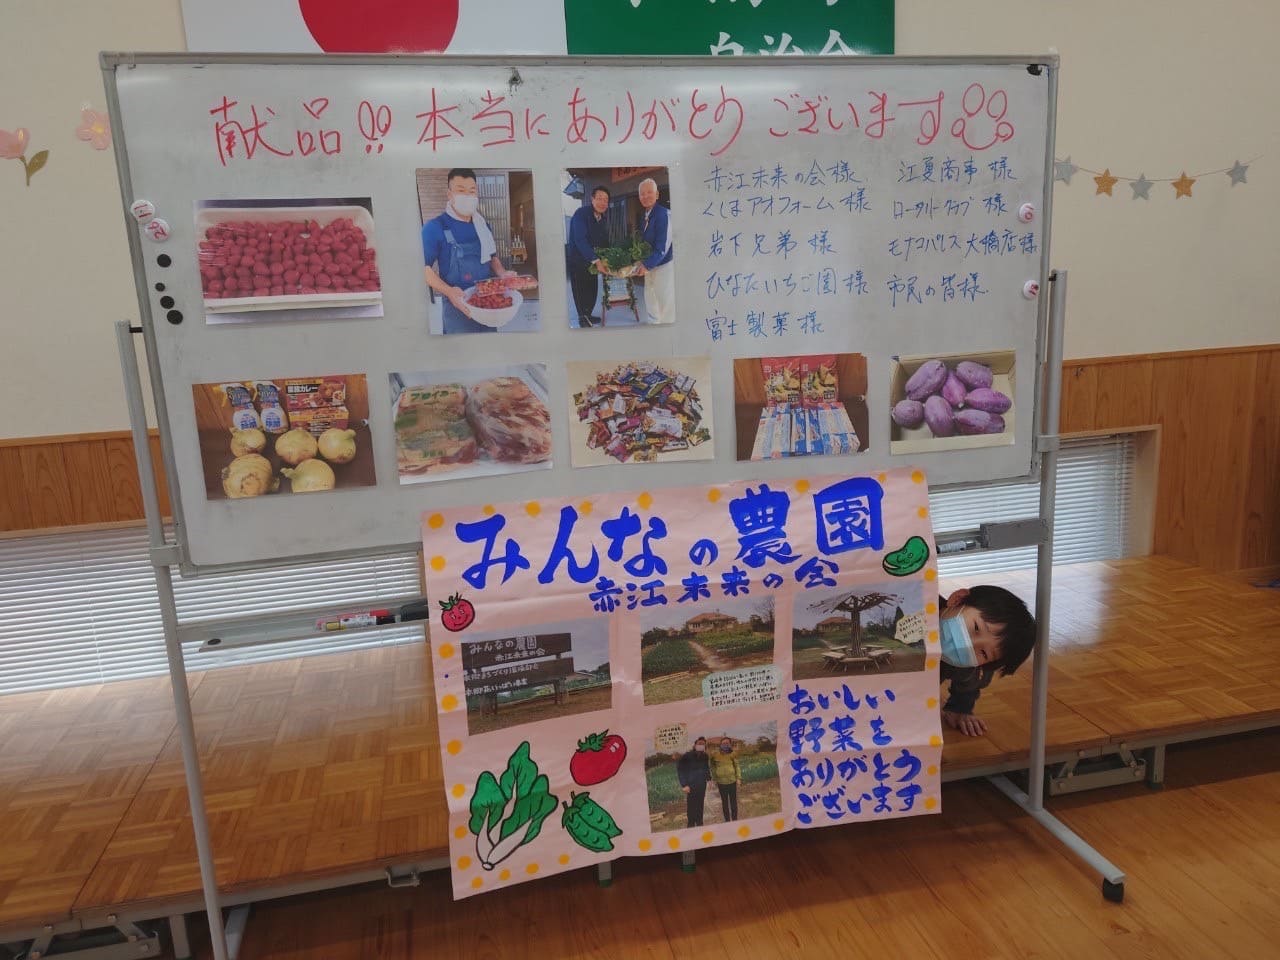 自治会
献品!! 本当に ありがとう ございます
赤江未来の会様
くしまアオイファーム様
岩下兄弟様
ひなたいちご園様
富士製菓様
江夏商事様
ロータリークラブ様
モナコパレス大橋店様
市民の皆様
みんなの農園
赤江未来の会
みんなの農園
赤江未来の会
おいしい
野菜を
ありがとう
ございます